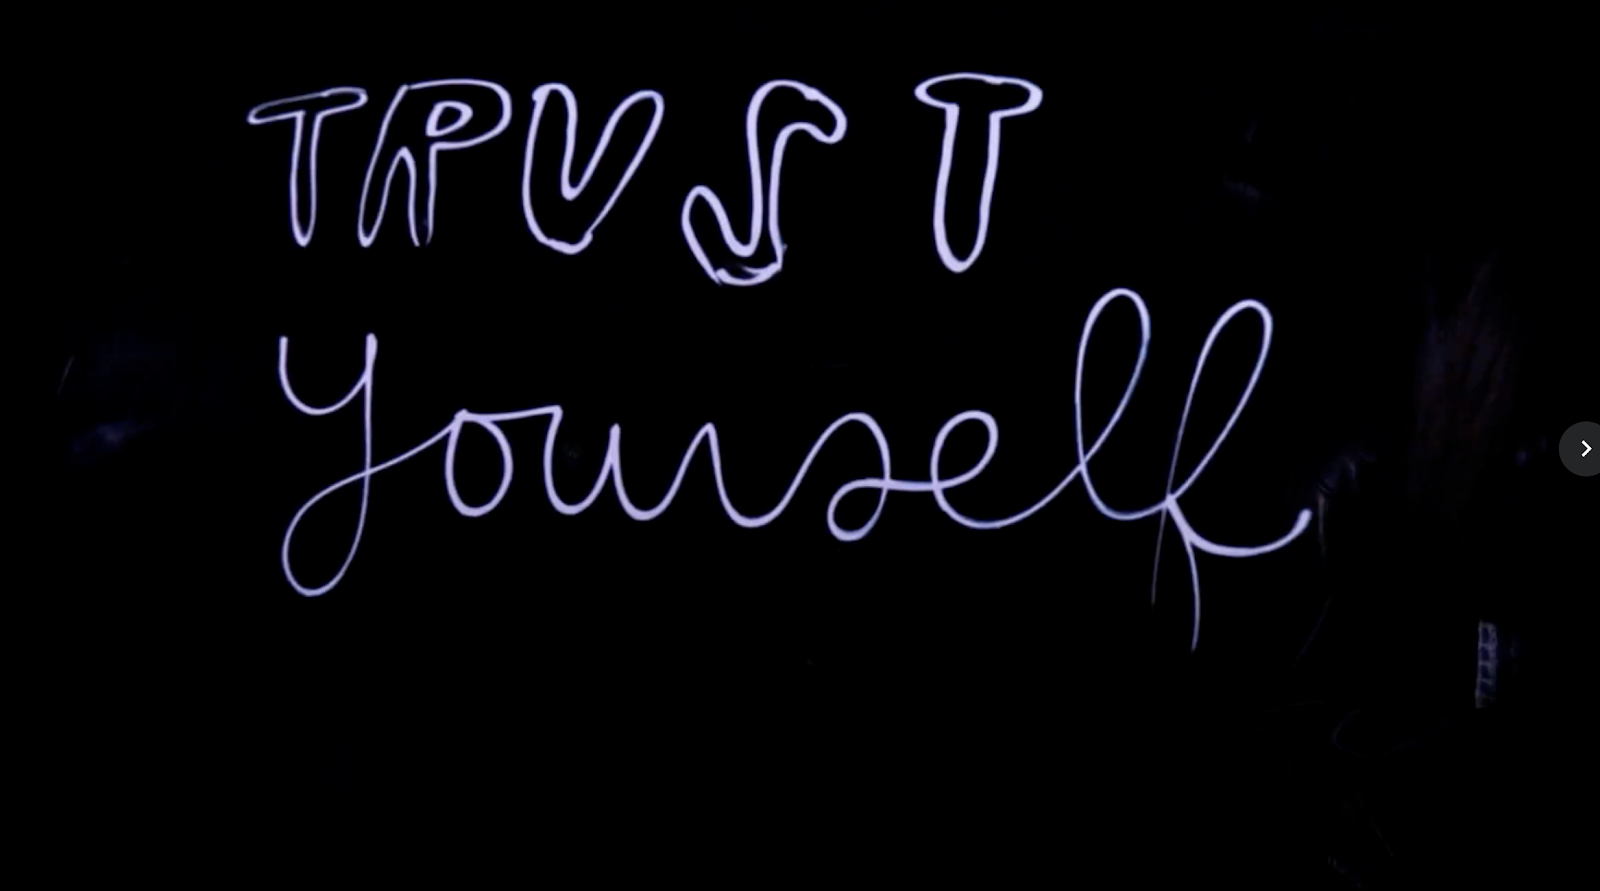 TRUST
yourself